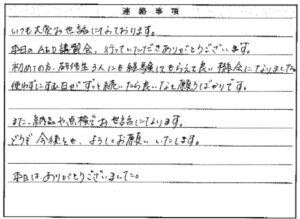 連絡事項
いつも大変お世話になっております。
本日のAED講習会、行っていただきありがとうございます。
初めての方、研修医3人にも経験してもらえて良い機会になりました。
使わずにすむ日がずっと続いたら良いなと願うばかりです。
また、納品や点検でお世話になります。
どうぞ今後とも、よろしくお願いいたします。
本日はありがとうございました。